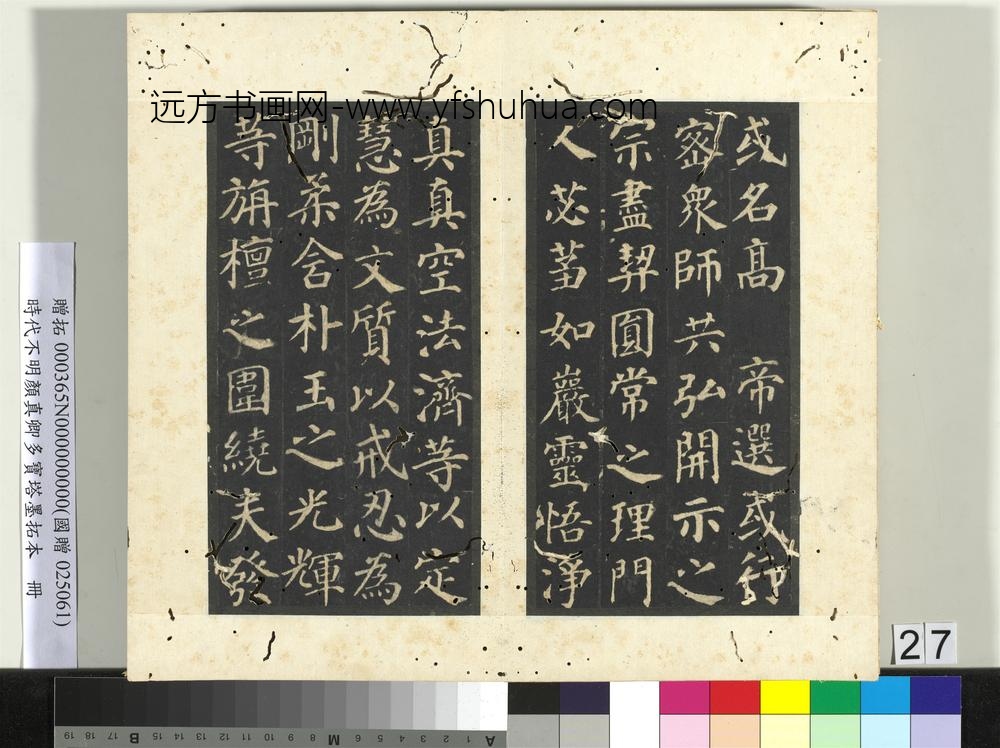 远方书画网-www.yfshuhua.com
或名高 帝選或行
密衆師共弘開示之
宗盡契圓常之理門
人苾芻如巖靈悟淨
真真空法濟等以定
慧為文質以戒忍為
剛柔含朴玉之光輝
等旃檀之圍繞夫發
贈拓 000365N000000000(國贈 025061)
時代不明顏真卿多寶塔墨拓本 冊
27